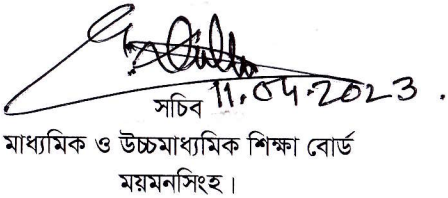 সচিব 11.04.2023.
মাধ্যমিক ও উচ্চমাধ্যমিক শিক্ষা বোর্ড
ময়মনসিংহ।